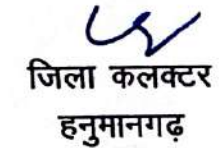 जिला कलक्टर
हनुमानगढ़